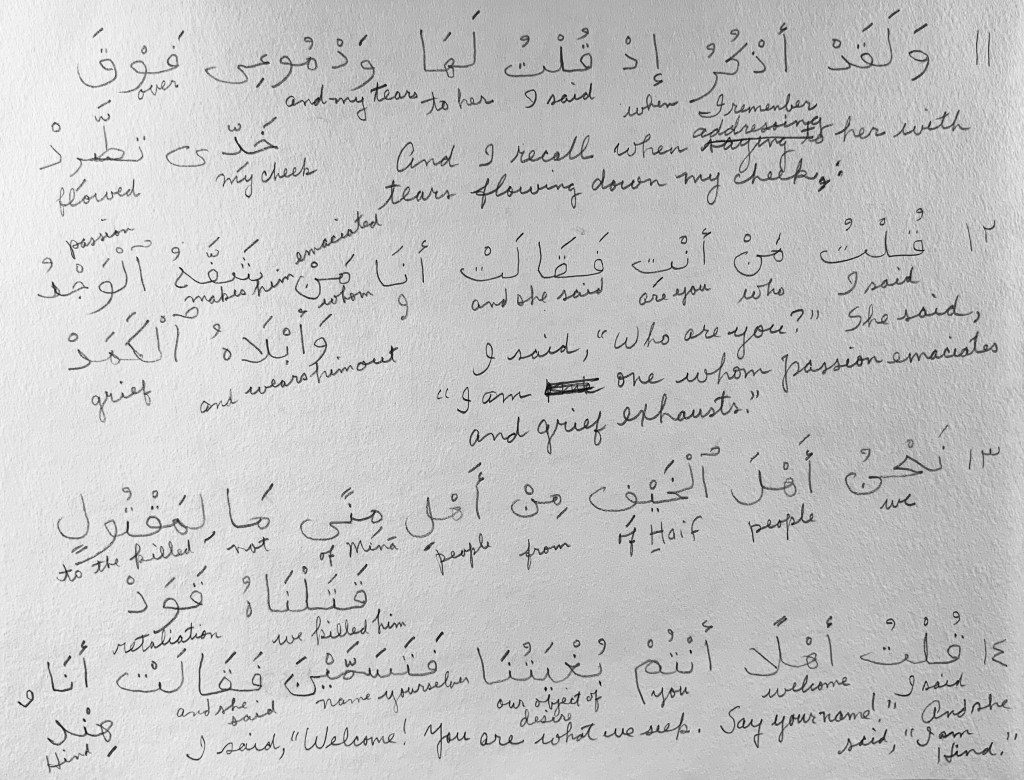 ١١ وَلَقَدْ أَذْكُرُ إِذْ قُلْتُ لَهَا وَدُمُوعِى فَوْقَ
I remember when I said to her and my tears over
خَدِّى تَطَّرِدْ
my cheek flowed
And I recall when addressing her with
tears flowing down my cheek:
١٢ قُلْتُ مَنْ أَنْتِ فَقَالَتْ أَنَا مَنْ شَفَّهُ ٱلْوَجْدُ
I said who are you and she said I whom makes him emaciated passion
وَأَبْلَاهُ ٱلْكَمَدْ
and wears him out grief
I said, "Who are you?" She said,
"I am one whom passion emaciates
and grief exhausts."
١٣ نَحْنُ أَهْلَ ٱلْخَيْفِ مِنْ أَهْلِ مِنًى مَا لِمَقْتُولٍ
we people of Haif from people of Minā not to the killed
قَتَلْنَاهُ قَوَدْ
we killed him retaliation
١٤ قُلْتُ أَهْلًا أَنْتُمْ بُغْيَتُنَا فَتَسَمَّيْنَ فَقَالَتْ أَنَا
I said welcome you our object of desire name yourselves and she said I
هِنْد
Hind
I said, "Welcome! You are what we seek. Say your name!" And she
said, "I am
Hind."